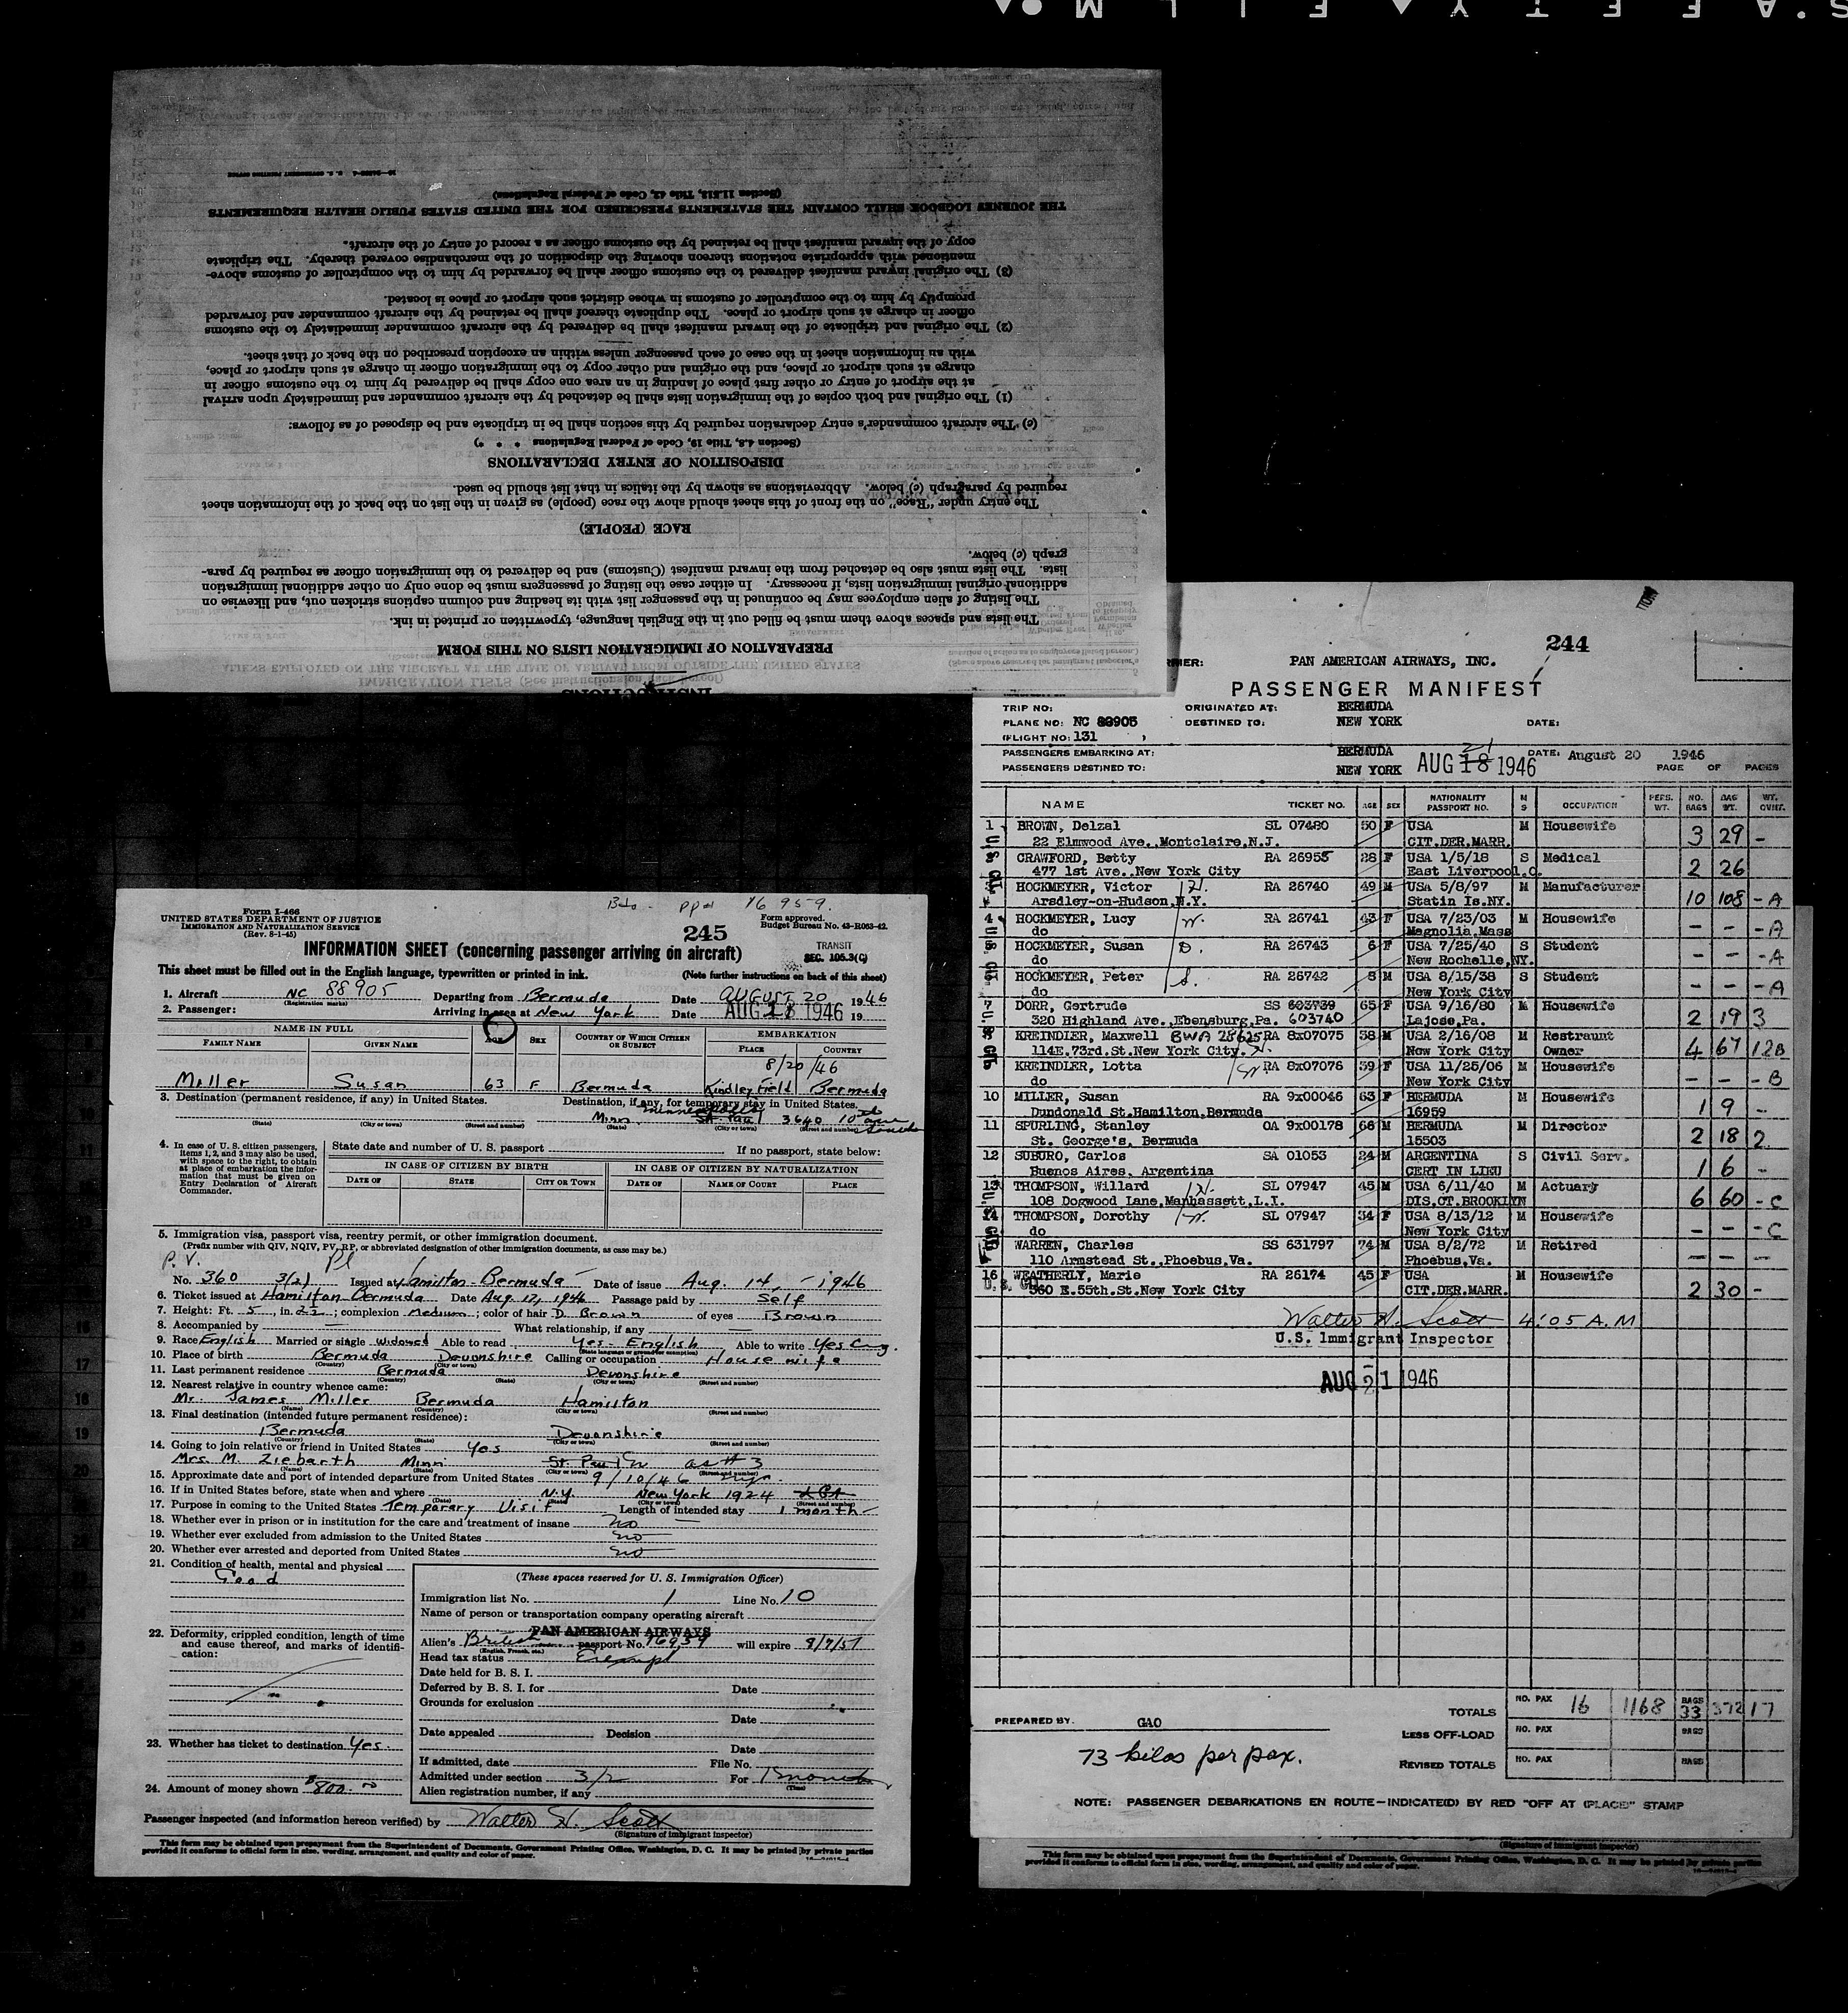 SAFETY FILM
INSTRUCTIONS
PREPARATION OF IMMIGRATION LISTS ON THIS FORM
The lists and spaces above them must be filled out in the English language, typewritten or printed in ink.
The listing of alien employees may be continued in the passenger list with its heading and column captions stricken out, and likewise on
additional original immigration lists, if necessary. In either case the listing of passengers must be done only on other additional immigration
lists. The lists must also be detached from the inward manifest (Customs) and be delivered to the immigration officer as required by para-
graph (c) below.
RACE (PEOPLE)
The entry under "Race" on the front of this sheet should show the race (people) as given in the list on the back of the information sheet
required by paragraph (c) below. Abbreviations as shown by the italics in that list should be used.
DISPOSITION OF ENTRY DECLARATIONS
(Section 4.8, Title 19, Code of Federal Regulations * * *)
(c) The aircraft commander's entry declaration required by this section shall be in triplicate and be disposed of as follows:
(1) The original and both copies of the immigration lists shall be detached by the aircraft commander and immediately upon arrival
at the airport of entry or other first place of landing in an area one copy shall be delivered by him to the customs officer in
charge at such airport or place, and the original and other copy to the immigration officer in charge at such airport or place,
with an information sheet in the case of each passenger unless within an exception prescribed on the back of that sheet.
(2) The original and triplicate of the inward manifest shall be delivered by the aircraft commander immediately to the customs
officer in charge at such airport or place. The duplicate thereof shall be retained by the aircraft commander and forwarded
promptly by him to the comptroller of customs in whose district such airport or place is located.
(3) The original inward manifest delivered to the customs officer shall be forwarded by him to the comptroller of customs above-
mentioned with appropriate notations thereon showing the disposition of the merchandise covered thereby. The triplicate
copy of the inward manifest shall be retained by the customs officer as a record of entry of the aircraft.
THE JOURNEY LOGBOOK SHALL CONTAIN THE STATEMENTS PRESCRIBED FOR THE UNITED STATES PUBLIC HEALTH REQUIREMENTS
(Section 11.513, Title 42, Code of Federal Regulations)
244
PAN AMERICAN AIRWAYS, INC.
PASSENGER MANIFEST
TRIP NO: ORIGINATED AT: BERMUDA
PLANE NO: NC 88905 DESTINED TO: NEW YORK DATE:
(FLIGHT NO: 131 )
PASSENGERS EMBARKING AT: BERMUDA DATE: August 20 1946
PASSENGERS DESTINED TO: NEW YORK AUG 18 1946 21 PAGE OF PAGES
NAME TICKET NO. AGE SEX NATIONALITY PASSPORT NO. M S OCCUPATION PERS. WT. NO. BAGS BAG WT. WT. OVHT.
1 BROWN, Delzal SL 07480 50 F USA M Housewife
22 Elmwood Ave., Montclaire, N.J. CIT.DER.MARR. 3 29 -
CRAWFORD, Betty RA 26955 28 F USA 1/5/18 S Medical
477 1st Ave., New York City East Liverpool.O. 2 26
HOCKMEYER, Victor H. RA 26740 49 M USA 5/8/97 M Manufacturer
Arsdley-on-Hudson, N.Y. Statin Is.NY. 10 108 - A
4 HOCKMEYER, Lucy W. RA 26741 43 F USA 7/23/03 M Housewife
do Magnolia, Mass - - - A
HOCKMEYER, Susan D. RA 26743 6 F USA 7/25/40 S Student
do New Rochelle, NY. - - - A
HOCKMEYER, Peter S. RA 26742 8 M USA 8/15/38 S Student
do New York City - - - A
7 DORR, Gertrude SS 603739 65 F USA 9/16/80 M Housewife
320 Highland Ave., Ebensburg, Pa. 603740 Lajose, Pa. 2 19 3
KREINDLER, Maxwell BWA 28625 RA 8x07075 38 M USA 2/16/08 M Restraunt
114E.73rd.St.New York City. H. New York City Owner 4 67 12B
KREINDLER, Lotta W RA 8x07076 39 F USA 11/25/06 M Housewife
do New York City - - - B
10 MILLER, Susan RA 9x00046 63 F BERMUDA M Housewife
Dundonald St.Hamilton, Bermuda 16959 1 9 -
11 SPURLING, Stanley OA 9x00178 66 M BERMUDA M Director
St. George's, Bermuda 15503 2 18 2
12 SUBURO, Carlos SA 01053 24 M ARGENTINA S Civil Serv.
Buenos Aires, Argentina CERT IN LIEU 1 6 -
13 THOMPSON, Willard H. SL 07947 45 M USA 6/11/40 M Actuary
108 Dogwood Lane, Manhassett, L.I. DIS.CT.BROOKLYN 6 60 - C
14 THOMPSON, Dorothy W. SL 07947 34 F USA 8/13/12 M Housewife
do New York City - - - C
WARREN, Charles SS 631797 74 M USA 8/2/72 M Retired
110 Armstead St., Phoebus, Va. Phoebus, Va. - - -
16 WEATHERLY, Marie RA 26174 45 F USA M Housewife
560 E.55th.St.New York City CIT.DER.MARR. 2 30 -
Walter H. Scott 4:05 A.M
U.S. Immigrant Inspector
AUG 21 1946
TOTALS NO. PAX 16 1168 BAGS 33 372 17
PREPARED BY. GAO
LESS OFF-LOAD NO. PAX BAGS
73 kilos per pax.
REVISED TOTALS NO. PAX BAGS
NOTE: PASSENGER DEBARKATIONS EN ROUTE—INDICATE(D) BY RED "OFF AT (PLACE)" STAMP
(Signature of immigrant inspector)
This form may be obtained upon prepayment from the Superintendent of Documents, Government Printing Office, Washington, D. C. It may be printed by private parties
provided it conforms to official form in size, wording, arrangement, and quality and color of paper.
Form I-466
UNITED STATES DEPARTMENT OF JUSTICE
IMMIGRATION AND NATURALIZATION SERVICE
(Rev. 8-1-45)
245
Form approved.
Budget Bureau No. 43-R063-42.
TRANSIT
SEC. 105.3(C)
INFORMATION SHEET (concerning passenger arriving on aircraft)
This sheet must be filled out in the English language, typewritten or printed in ink. (Note further instructions on back of this sheet)
1. Aircraft NC 88905 Departing from Bermuda Date AUGUST 20 1946
(Registration marks)
2. Passenger: Arriving in area at New York Date AUG 18 1946 19
NAME IN FULL AGE SEX COUNTRY OF WHICH CITIZEN OR SUBJECT EMBARKATION
FAMILY NAME GIVEN NAME PLACE COUNTRY
8/20/46
Miller Susan 63 F Bermuda Kindley Field Bermuda
3. Destination (permanent residence, if any) in United States. Destination, if any, for temporary stay in United States.
Minn. Minneapolis St. Paul 3640 10th ave South
(State) (City or town) (Street and number) (State) (City or town) (Street and number)
4. In case of U. S. citizen passengers, items 1, 2, and 3 may also be used, with space to the right, to obtain at place of embarkation the information that must be given on Entry Declaration of Aircraft Commander.
State date and number of U. S. passport If no passport, state below:
IN CASE OF CITIZEN BY BIRTH IN CASE OF CITIZEN BY NATURALIZATION
DATE OF STATE CITY OR TOWN DATE OF NAME OF COURT PLACE
5. Immigration visa, passport visa, reentry permit, or other immigration document.
(Prefix number with QIV, NQIV, PV, RP, or abbreviated designation of other immigration documents, as case may be.)
P. V. Pl
No. 360 3(2) Issued at Hamilton-Bermuda Date of issue Aug. 14, - 1946
6. Ticket issued at Hamilton Bermuda Date Aug 12, 1946 Passage paid by Self
7. Height: Ft. 5, in. 2½; complexion Medium; color of hair D. Brown of eyes Brown
8. Accompanied by — What relationship, if any —
9. Race English Married or single widowed Able to read yes - English Able to write yes Eng.
(State language or ground for exemption)
10. Place of birth Bermuda Devonshire Calling or occupation House wife
(Country) (City or town)
11. Last permanent residence Bermuda Devonshire
(Country) (State) (City or town) (Street and number)
12. Nearest relative in country whence came:
Mr. James Miller Bermuda Hamilton
(Name) (Country) (Street and number)
13. Final destination (intended future permanent residence):
Bermuda Devonshire
(Country) (State) (City or town) (Street and number)
14. Going to join relative or friend in United States Yes
Mrs. M. Ziebarth Minn St. Paul as # 3
(Name) (State) (City or town) (Street and number)
15. Approximate date and port of intended departure from United States 9/10/46 nyc.
16. If in United States before, state when and where N.Y. New York 1924
(Date) (State) (City or town) (Street and number)
17. Purpose in coming to the United States Temparary Visit Length of intended stay 1 month
18. Whether ever in prison or in institution for the care and treatment of insane no
19. Whether ever excluded from admission to the United States no
20. Whether ever arrested and deported from United States no
21. Condition of health, mental and physical
Good
22. Deformity, crippled condition, length of time and cause thereof, and marks of identification:
23. Whether has ticket to destination Yes.
24. Amount of money shown $800.00
(These spaces reserved for U. S. Immigration Officer)
Immigration list No. 1 Line No. 10
Name of person or transportation company operating aircraft
PAN AMERICAN AIRWAYS
Alien's British passport No. 16959 will expire 8/7/51
(English, French, etc.)
Head tax status Exempt
Date held for B. S. I.
Deferred by B. S. I. for Date
Grounds for exclusion
Date
Date appealed Decision
Date
If admitted, date File No.
Admitted under section 3/2 For 1 month
(Time)
Alien registration number, if any
Passenger inspected (and information hereon verified) by Walter H. Scott
(Signature of immigrant inspector)
This form may be obtained upon prepayment from the Superintendent of Documents, Government Printing Office, Washington, D. C. It may be printed by private parties
provided it conforms to official form in size, wording, arrangement, and quality and color of paper.